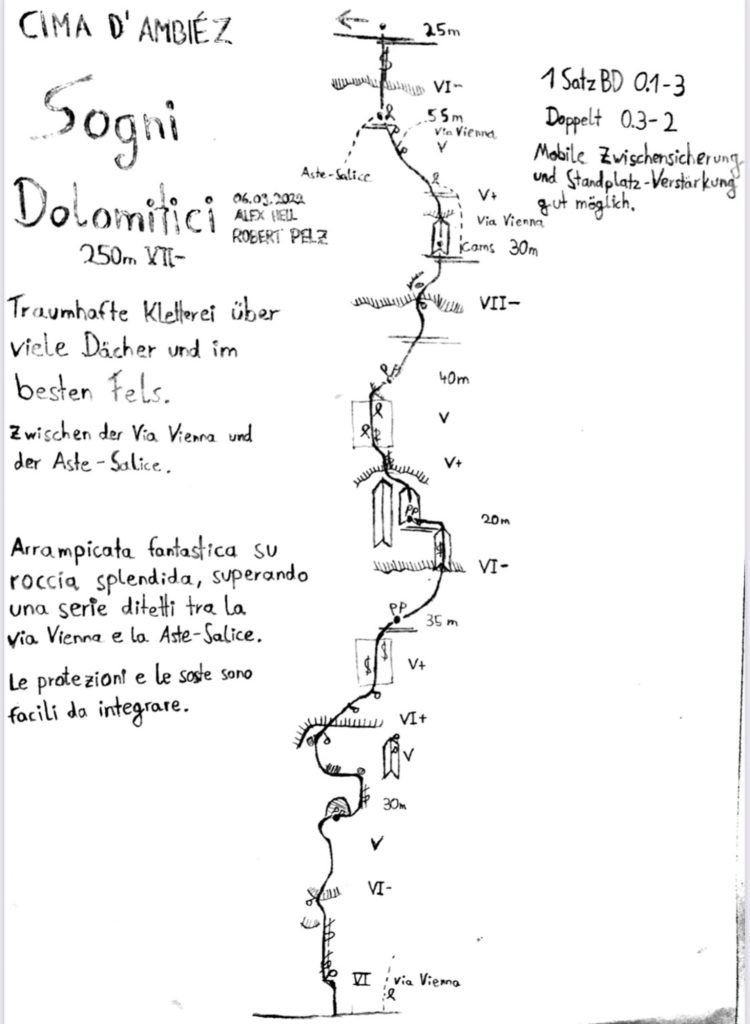 CIMA D'AMBIÉZ
Sogni
Dolomitici
250m VII-
06.09.2022
ALEX HELL
ROBERT PELZ
Traumhafte Kletterei über
viele Dächer und im
besten Fels.
Zwischen der Via Vienna und
der Aste-Salice.
Arrampicata fantastica su
roccia splendida, superando
una serie ditetti tra la
via Vienna e la Aste-Salice.
Le protezioni e le soste sono
facili da integrare.
1 Satz BD 0.1-3
Doppelt 0.3-2
Mobile Zwischensicherung
und Standplatz-Verstärkung
gut möglich.
25m
VI-
55m
Via Vienna
V
Aste-Salice
V+
Via Vienna
Cams 30m
VII-
40m
V
V+
PP
20m
VI-
PP
35m
V+
VI+
V
30m
V
VI-
VI
Via Vienna